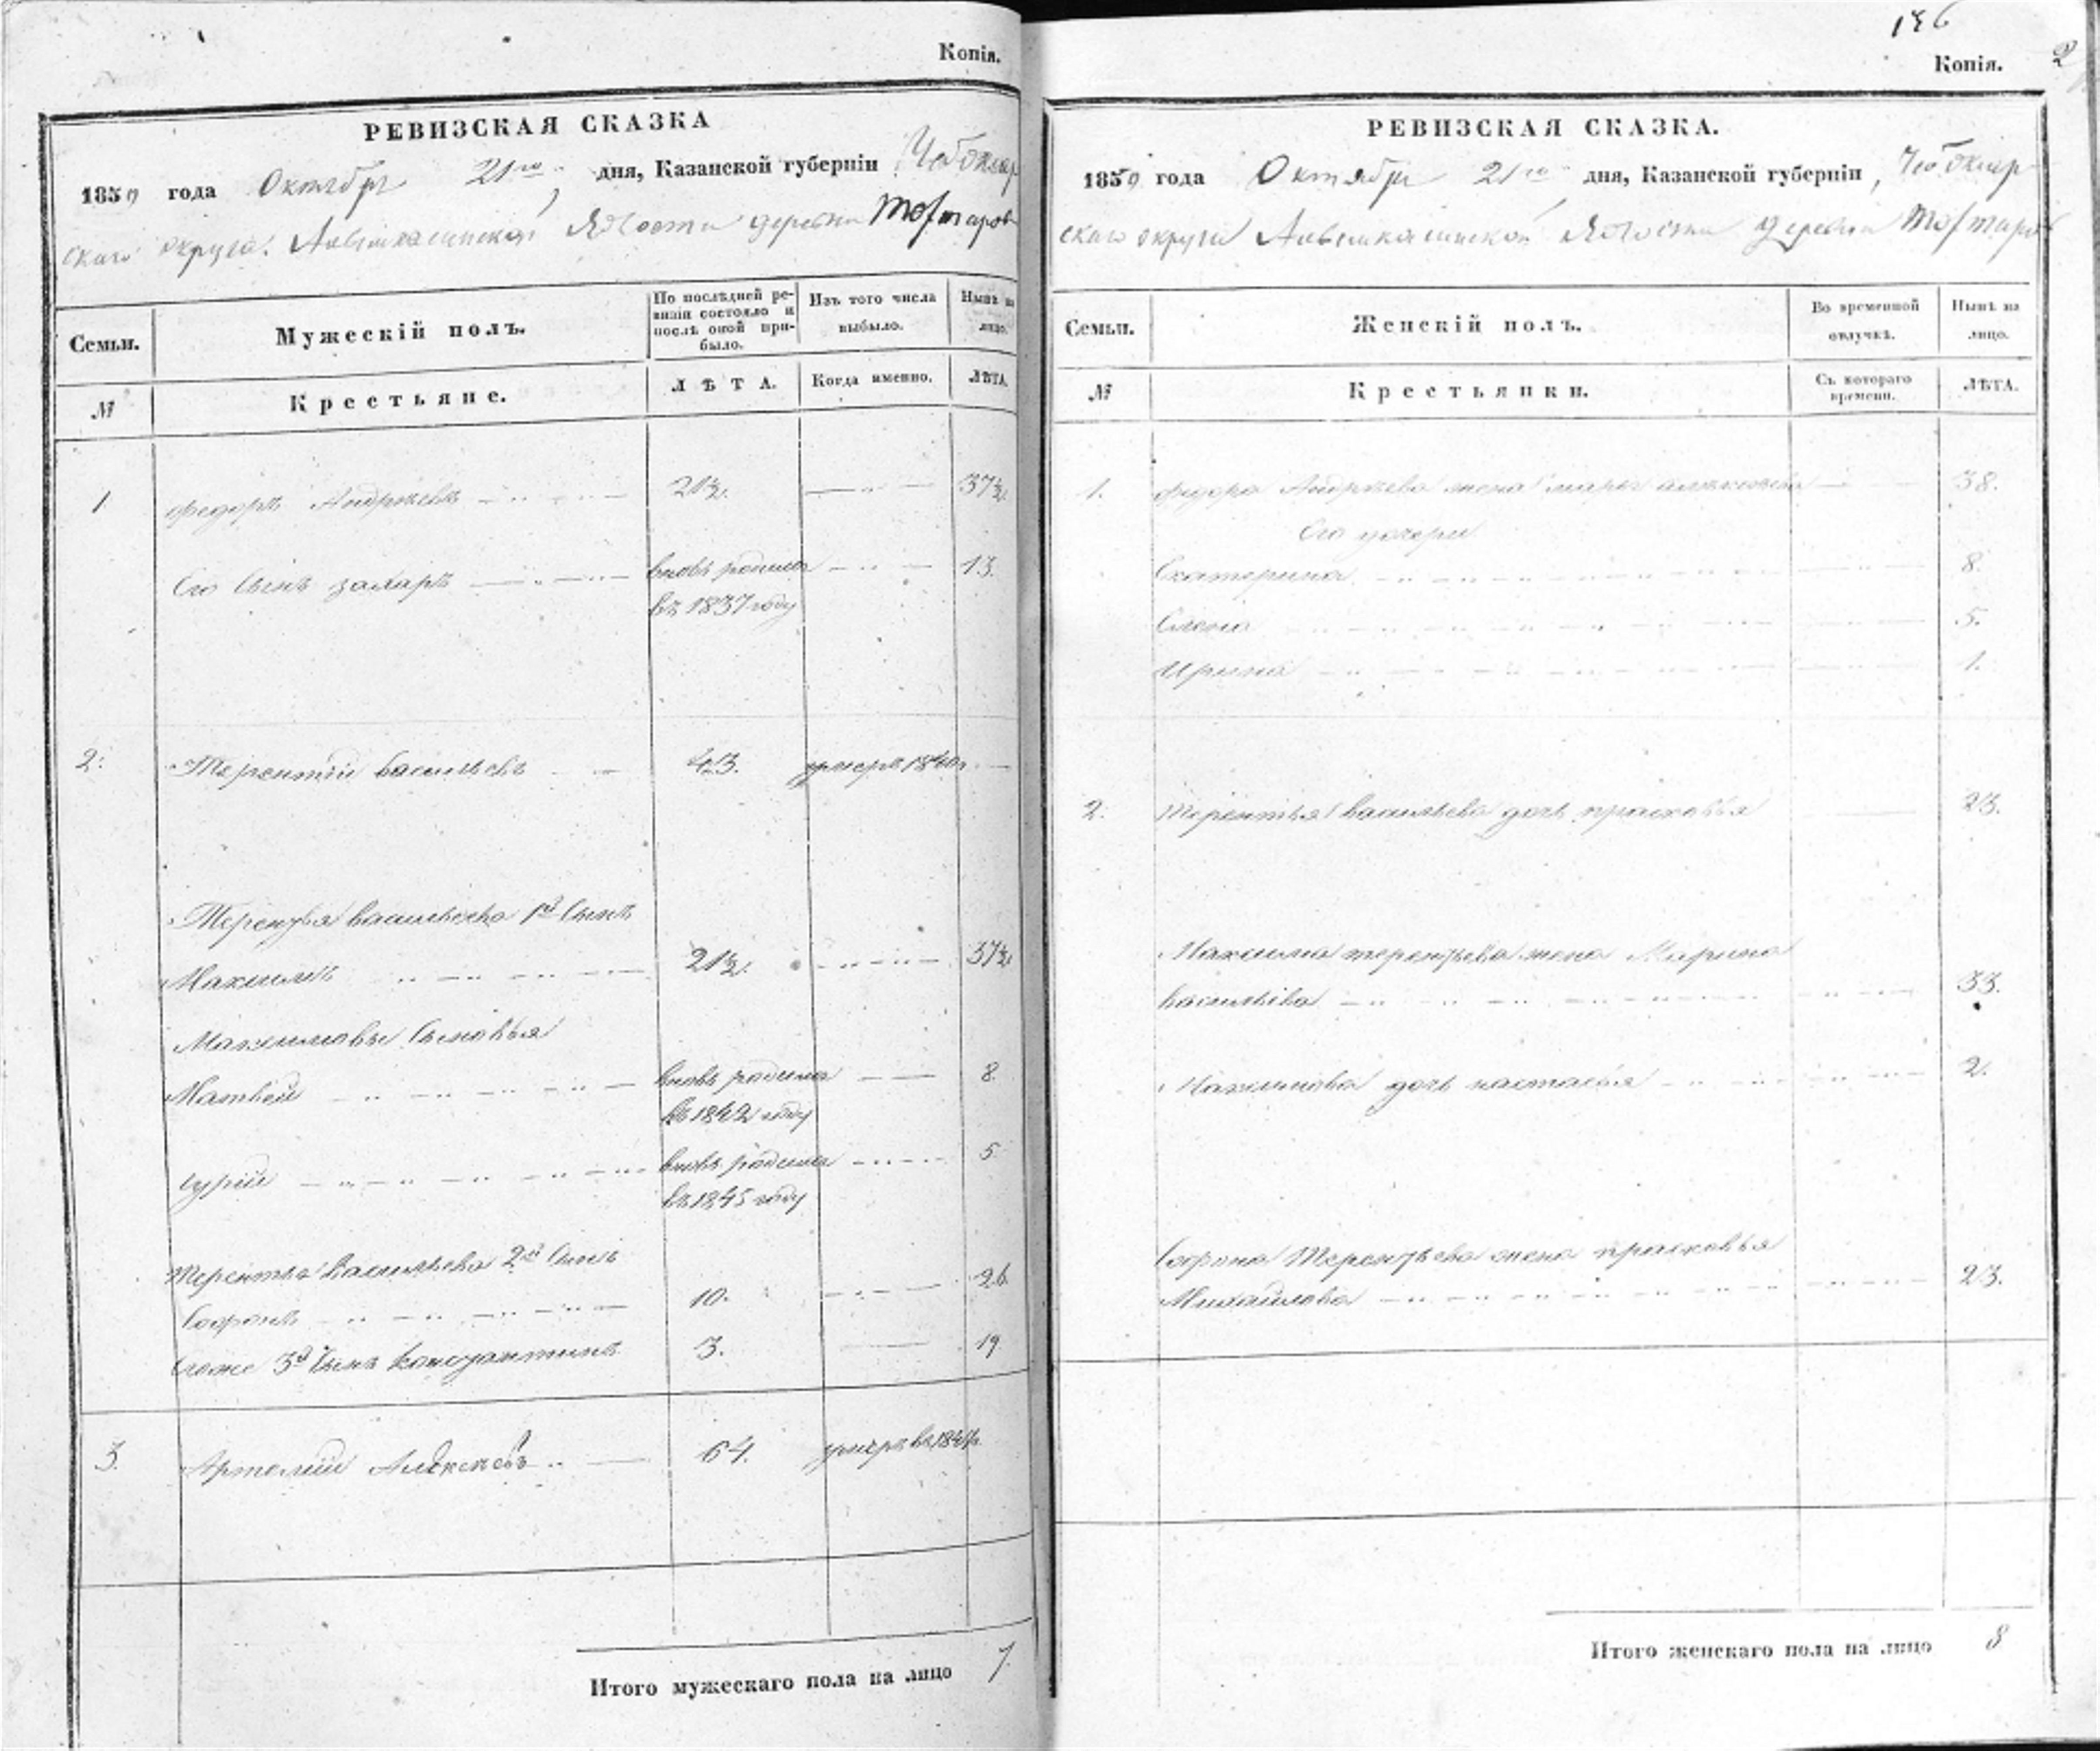 Копія.
РЕВИЗСКАЯ СКАЗКА
1850 года Октября 21го дня, Казанской губерніи Чебоксар
скаго округа. волости деревни
Семьи.
Мужескій полъ.
По послѣдней ре-
визіи состояло и
послѣ оной при-
было.
Изъ того числа
выбыло.
Нынѣ на
лицо.
№
Крестьяне.
ЛѢТА.
Когда именно.
ЛѢТА.
1 Федоръ Андрѣевъ 21½. 37½
Его Сынъ Захаръ вновь родился 13.
въ 1837 году
2. Терентій Васильевъ 43. умеръ
Терентья Васильева 1й Сынъ
Максимъ 21½. 37½
Максимовы Сыновья
Матвей вновь родился 8.
въ 1842 году
Гурій вновь родился 5
въ 1845 году
Терентья Васильева 2й Сынъ
Софронъ 10. 26
Егоже 3й Сынъ Константинъ 3. 19
3. Артемій Алексеевъ 64. умеръ въ
Итого мужескаго пола на лицо 7.
186
Копія. 2
РЕВИЗСКАЯ СКАЗКА.
1850 года Октября 21го дня, Казанской губерніи, Чебоксар
скаго округа волости деревни
Семьи.
Женскій полъ.
Во временной
отлучкѣ.
Нынѣ на
лицо.
№
Крестьянки.
Съ котораго
времени.
ЛѢТА.
1. Федора Андрѣева жена Марья Алексѣева 38.
Его дочери
Екатерина 8.
Елена 5.
Ирина 1.
2. Терентья Васильева дочь прасковья 23.
Максима терентьева жена Марина
Васильева 33.
Максимова дочь настасья 2.
Софрона Терентьева жена прасковья
Михайлова 23.
Итого женскаго пола на лицо 8